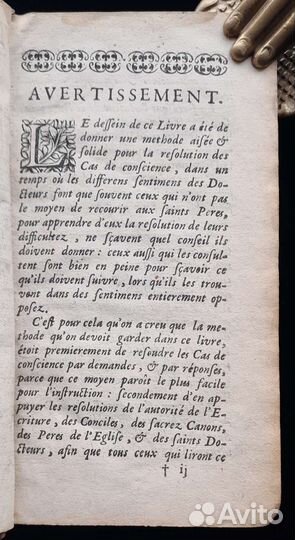 AVERTISSEMENT.
LE dessein de ce Livre a été de
donner une methode aisée &
solide pour la resolution des
Cas de conscience, dans un
temps où les differens sentimens des Do-
cteurs font que souvent ceux qui n'ont pas
le moyen de recourir aux saints Peres,
pour apprendre d'eux la resolution de leurs
difficultez, ne sçavent quel conseil ils
doivent donner : ceux aussi qui les consul-
tent sont bien en peine pour sçavoir ce
qu'ils doivent suivre, lors qu'ils les trou-
vent dans des sentimens entierement op-
posez.
C'est pour cela qu'on a creu que la me-
thode qu'on devoit garder dans ce livre,
étoit premierement de resoudre les Cas de
conscience par demandes, & par réponses,
parce que ce moyen paroît le plus facile
pour l'instruction : secondement d'en ap-
puyer les resolutions de l'autorité de l'E-
criture, des Conciles, des sacrez Canons,
des Peres de l'Eglise, & des saints Do-
cteurs, afin que tous ceux qui liront ce
† ij
Avito